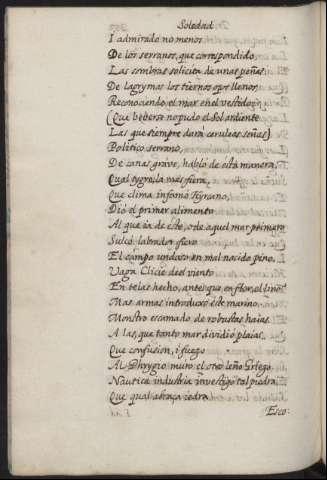 Soledad
I admirado no menos
De los serranos, que correspondido,
Las sombras solicita de unas peñas.
De lagrymas los tiernos ojos llenos
Reconociendo el mar en el vestido
(Que beberse no pudo el Sol ardiente
Las que siempre dará ceruleas señas)
Politico serrano,
De canas grave, habló de esta manera.
Qual tygre, la más fiera,
Que clima infamó Hyrcano,
Dió el primer alimento
Al que ia de este, o de aquel mar primero
Surcó labrador fiero
El campo undoso en mal nacido pino.
Vaga Clicie del viento
En telas hecho, antes que en flor, el lino?
Mas armas introduxo este marino
Monstro escamado de robustas haias
A las, que tanto mar dividió plaias,
Que confusion, i fuego
Al Phrygio muro el otro leño Griego.
Nautica industria investigó tal piedra
Que qual abraça iedra
Esco-